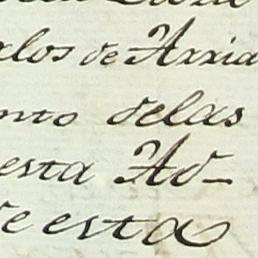 los de Arria
nto delas
esta Ad-
e esta